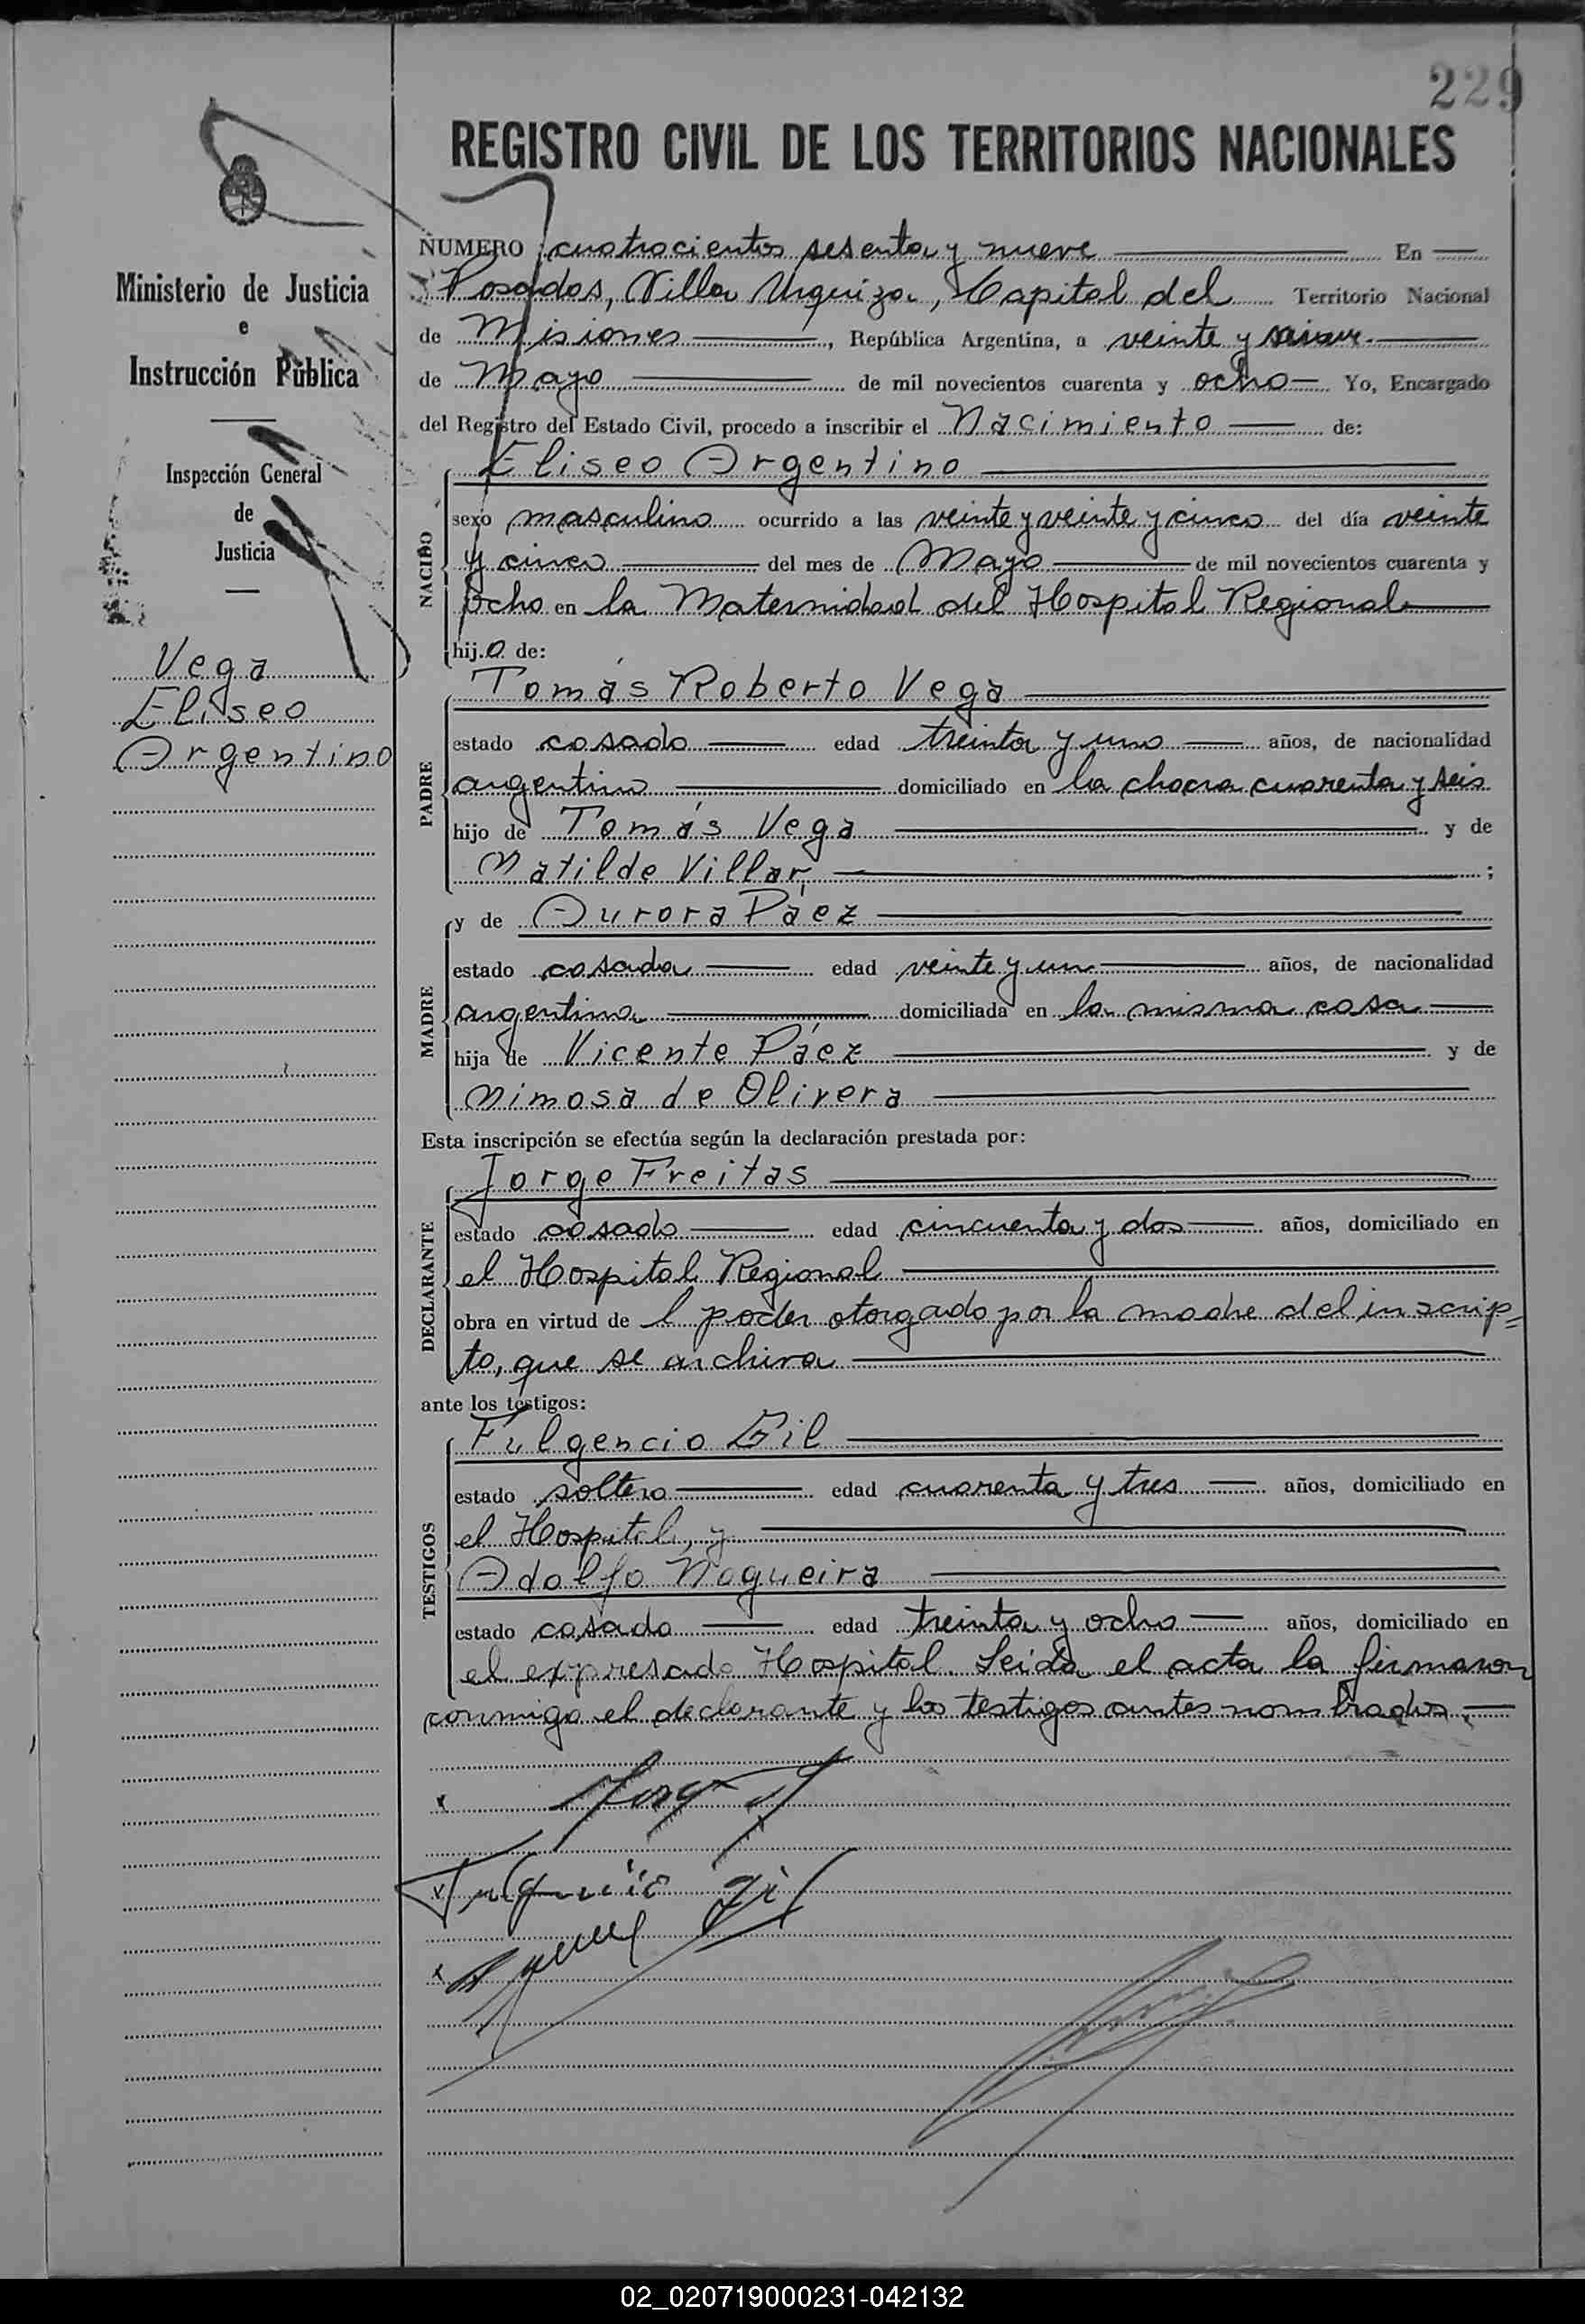 229
REGISTRO CIVIL DE LOS TERRITORIOS NACIONALES
Ministerio de Justicia
e
Instrucción Pública
Inspección General
de
Justicia
Vega
Eliseo
Argentino
NUMERO cuatrocientos sesenta y nueve En
Posadas, Villa Urquiza, Capital del Territorio Nacional
de Misiones, República Argentina, a veinte y
de Mayo de mil novecientos cuarenta y ocho Yo, Encargado
del Registro del Estado Civil, procedo a inscribir el Nacimiento de:
Eliseo Argentino
NACIDO
sexo masculino ocurrido a las veinte y veinte y cinco del día veinte
y cinco del mes de Mayo de mil novecientos cuarenta y
ocho en la Maternidad del Hospital Regional
hijo de:
PADRE
Tomás Roberto Vega
estado casado edad treinta y uno años, de nacionalidad
argentino domiciliado en la chacra cuarenta y seis
hijo de Tomás Vega y de
Matilde Villar ;
MADRE
y de Aurora Páez
estado casada edad veinte y un años, de nacionalidad
argentina domiciliada en la misma casa
hija de Vicente Páez y de
Mimosa de Olivera
Esta inscripción se efectúa según la declaración prestada por:
DECLARANTE
Jorge Freitas
estado casado edad cincuenta y dos años, domiciliado en
el Hospital Regional
obra en virtud de l poder otorgado por la madre del inscrip=
to, que se archiva
ante los testigos:
TESTIGOS
Fulgencio Gil
estado soltero edad cuarenta y tres años, domiciliado en
el Hospital, y
Adolfo Nogueira
estado casado edad treinta y ocho años, domiciliado en
el expresado Hospital. Leída el acta la firmaron
conmigo el declarante y los testigos antes nombrados.
x
x Fulgencio Gil
x
02_020719000231-042132